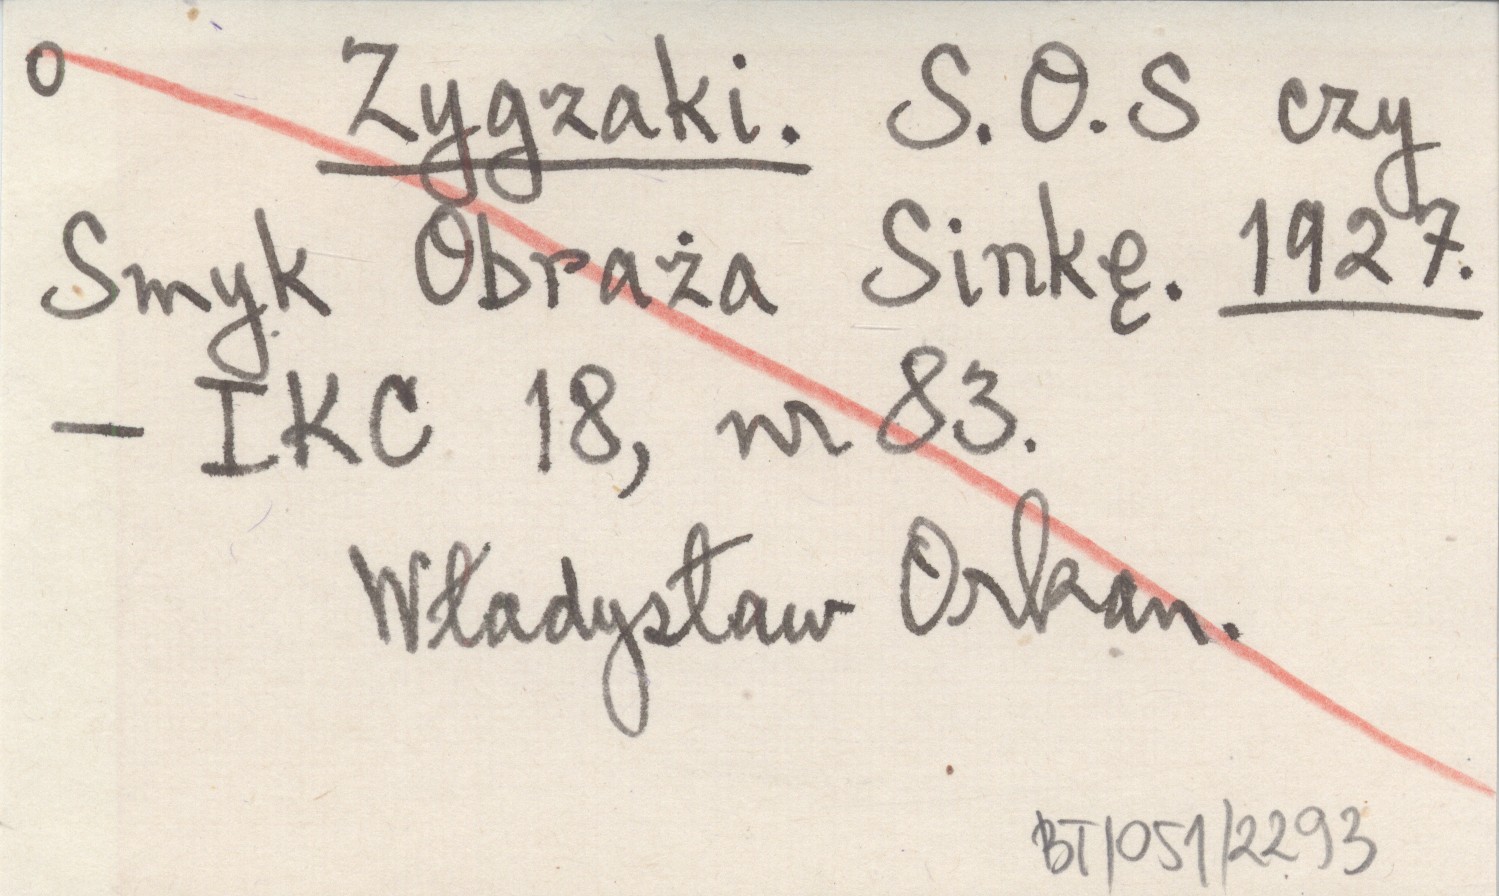 o Zygzaki. S.O.S czy
Smyk Obraża Sinkę. 1927.
– IKC 18, nr 83.
Władysław Orkan.
BT/051/2293